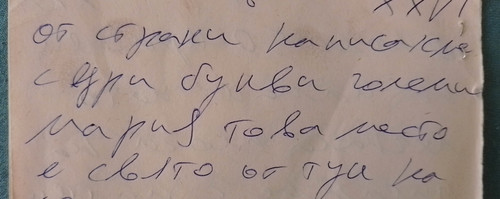 XXVI
от страни написано
с три букви големи
мария това место
е свято от туи на